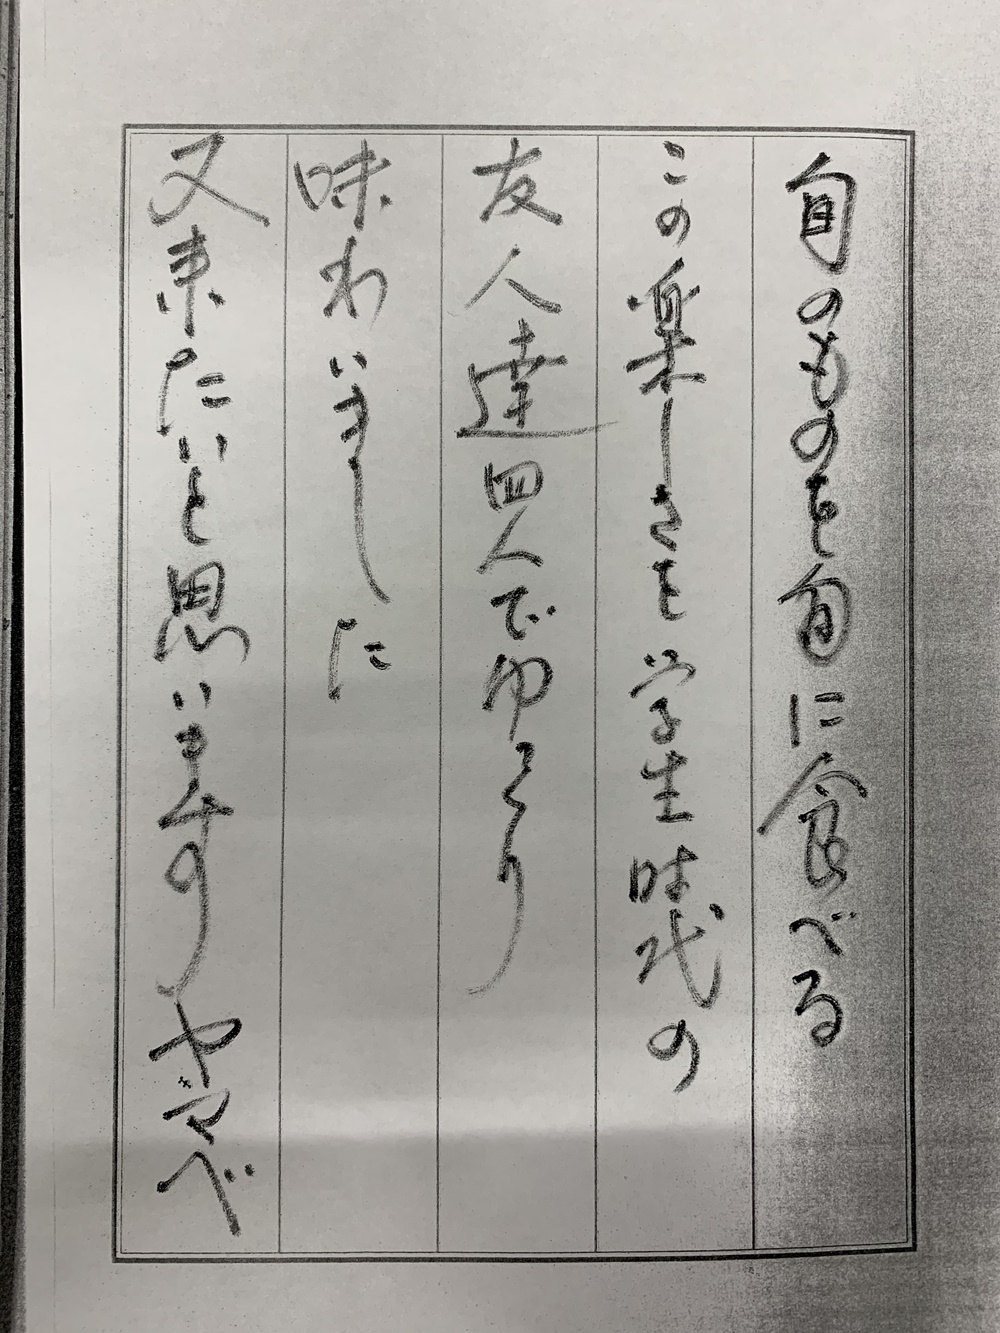 旬のものを旬に食べる
この楽しさを学生時代の
友人達四人でゆっくり
味わいました
又来たいと思いますの
ヤマベ